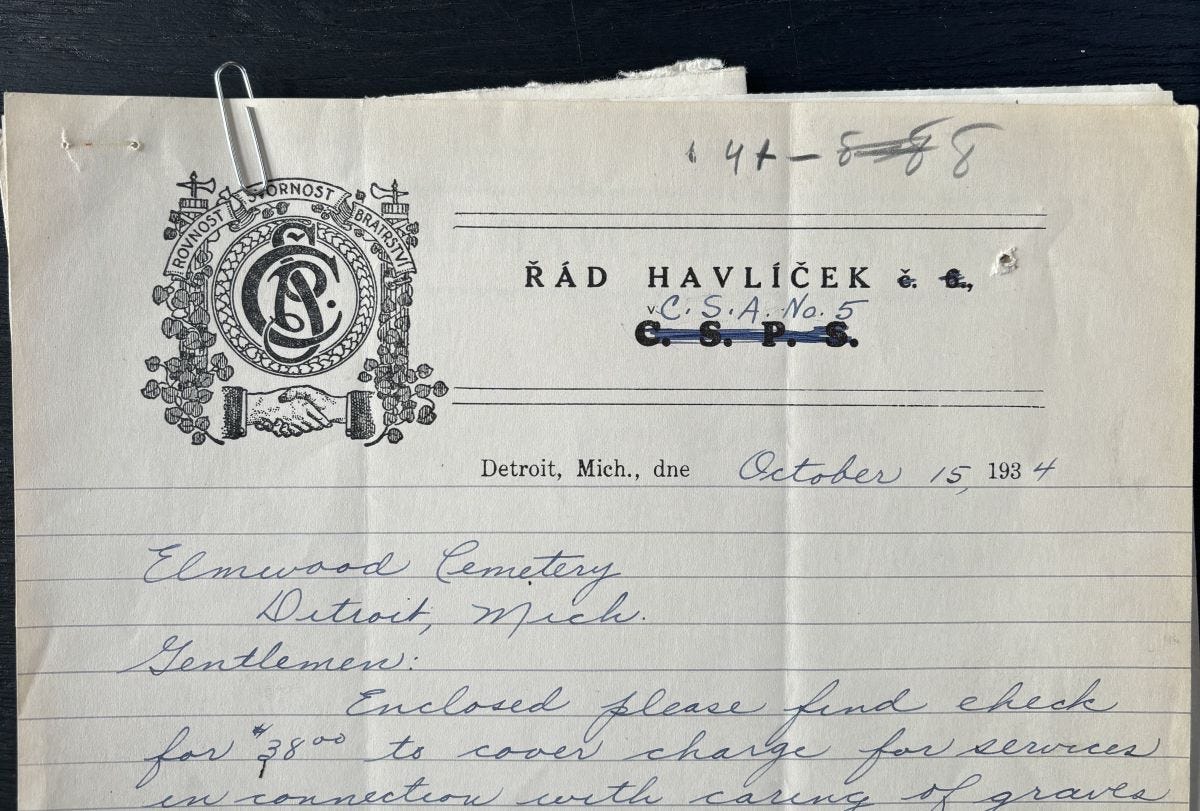 41-88 8
ROVNOST SVORNOST BRATRSTVÍ
ČSPS
ŘÁD HAVLÍČEK č. 6.,
v C. S. A. No. 5
C. S. P. S.
Detroit, Mich., dne October 15, 1934
Elmwood Cemetery
Detroit, Mich.
Gentlemen:
Enclosed please find check
for $38 00 to cover charge for services
in connection with caring of graves